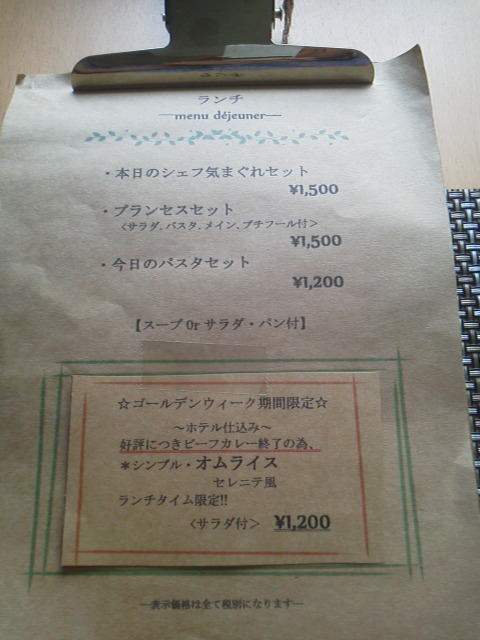 ランチ
menu déjeuner
・本日のシェフ気まぐれセット
¥1,500
・プランセスセット
〈サラダ、パスタ、メイン、プチフール付〉
¥1,500
・今日のパスタセット
¥1,200
【スープ Or サラダ・パン付】
☆ゴールデンウィーク期間限定☆
～ホテル仕込み～
好評につきビーフカレー終了の為、
＊シンプル・オムライス
セレニテ風
ランチタイム限定!!
〈サラダ付〉 ¥1,200
―表示価格は全て税別になります―